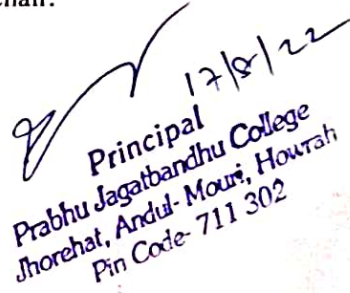 17/8/22
Principal
Prabhu Jagatbandhu College
Jhorehat, Andul-Mouri, Howrah
Pin Code- 711 302